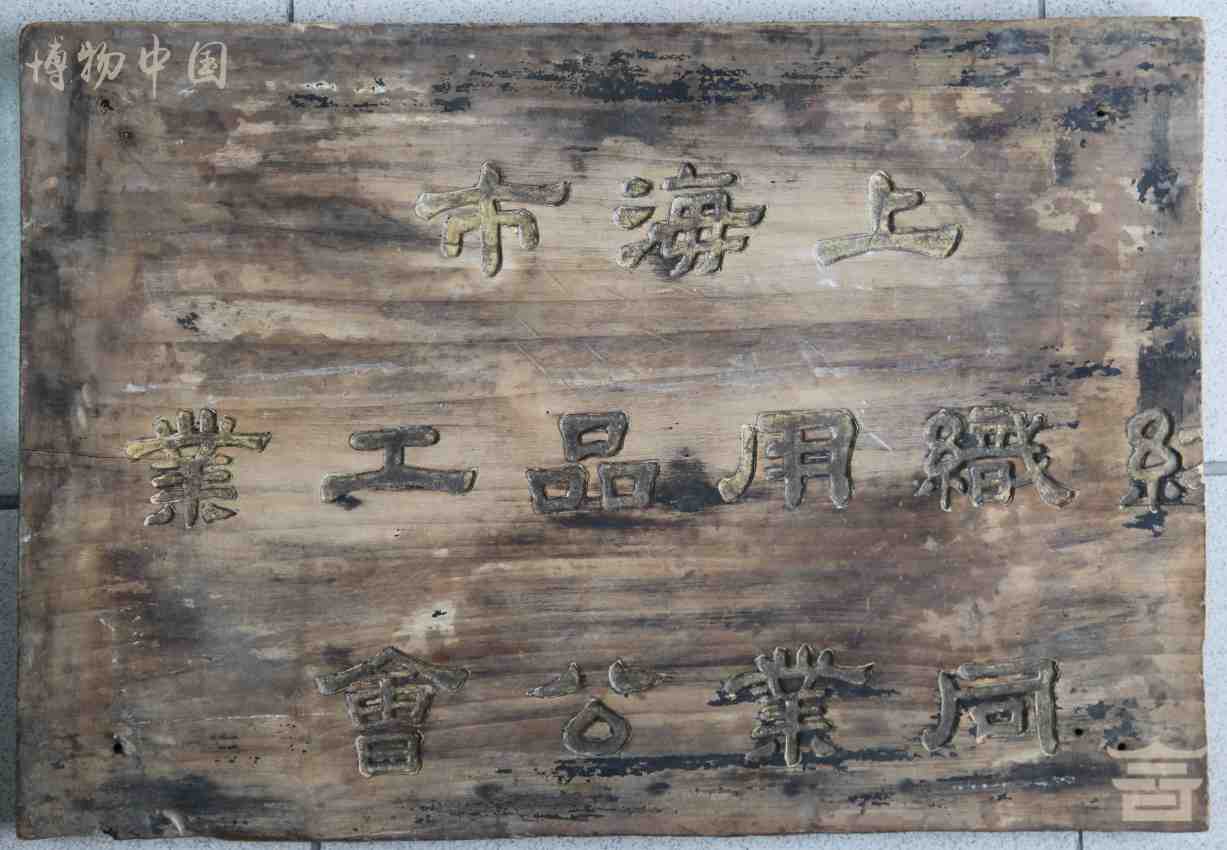 博物中国
上海市
織用品工業
同業公會